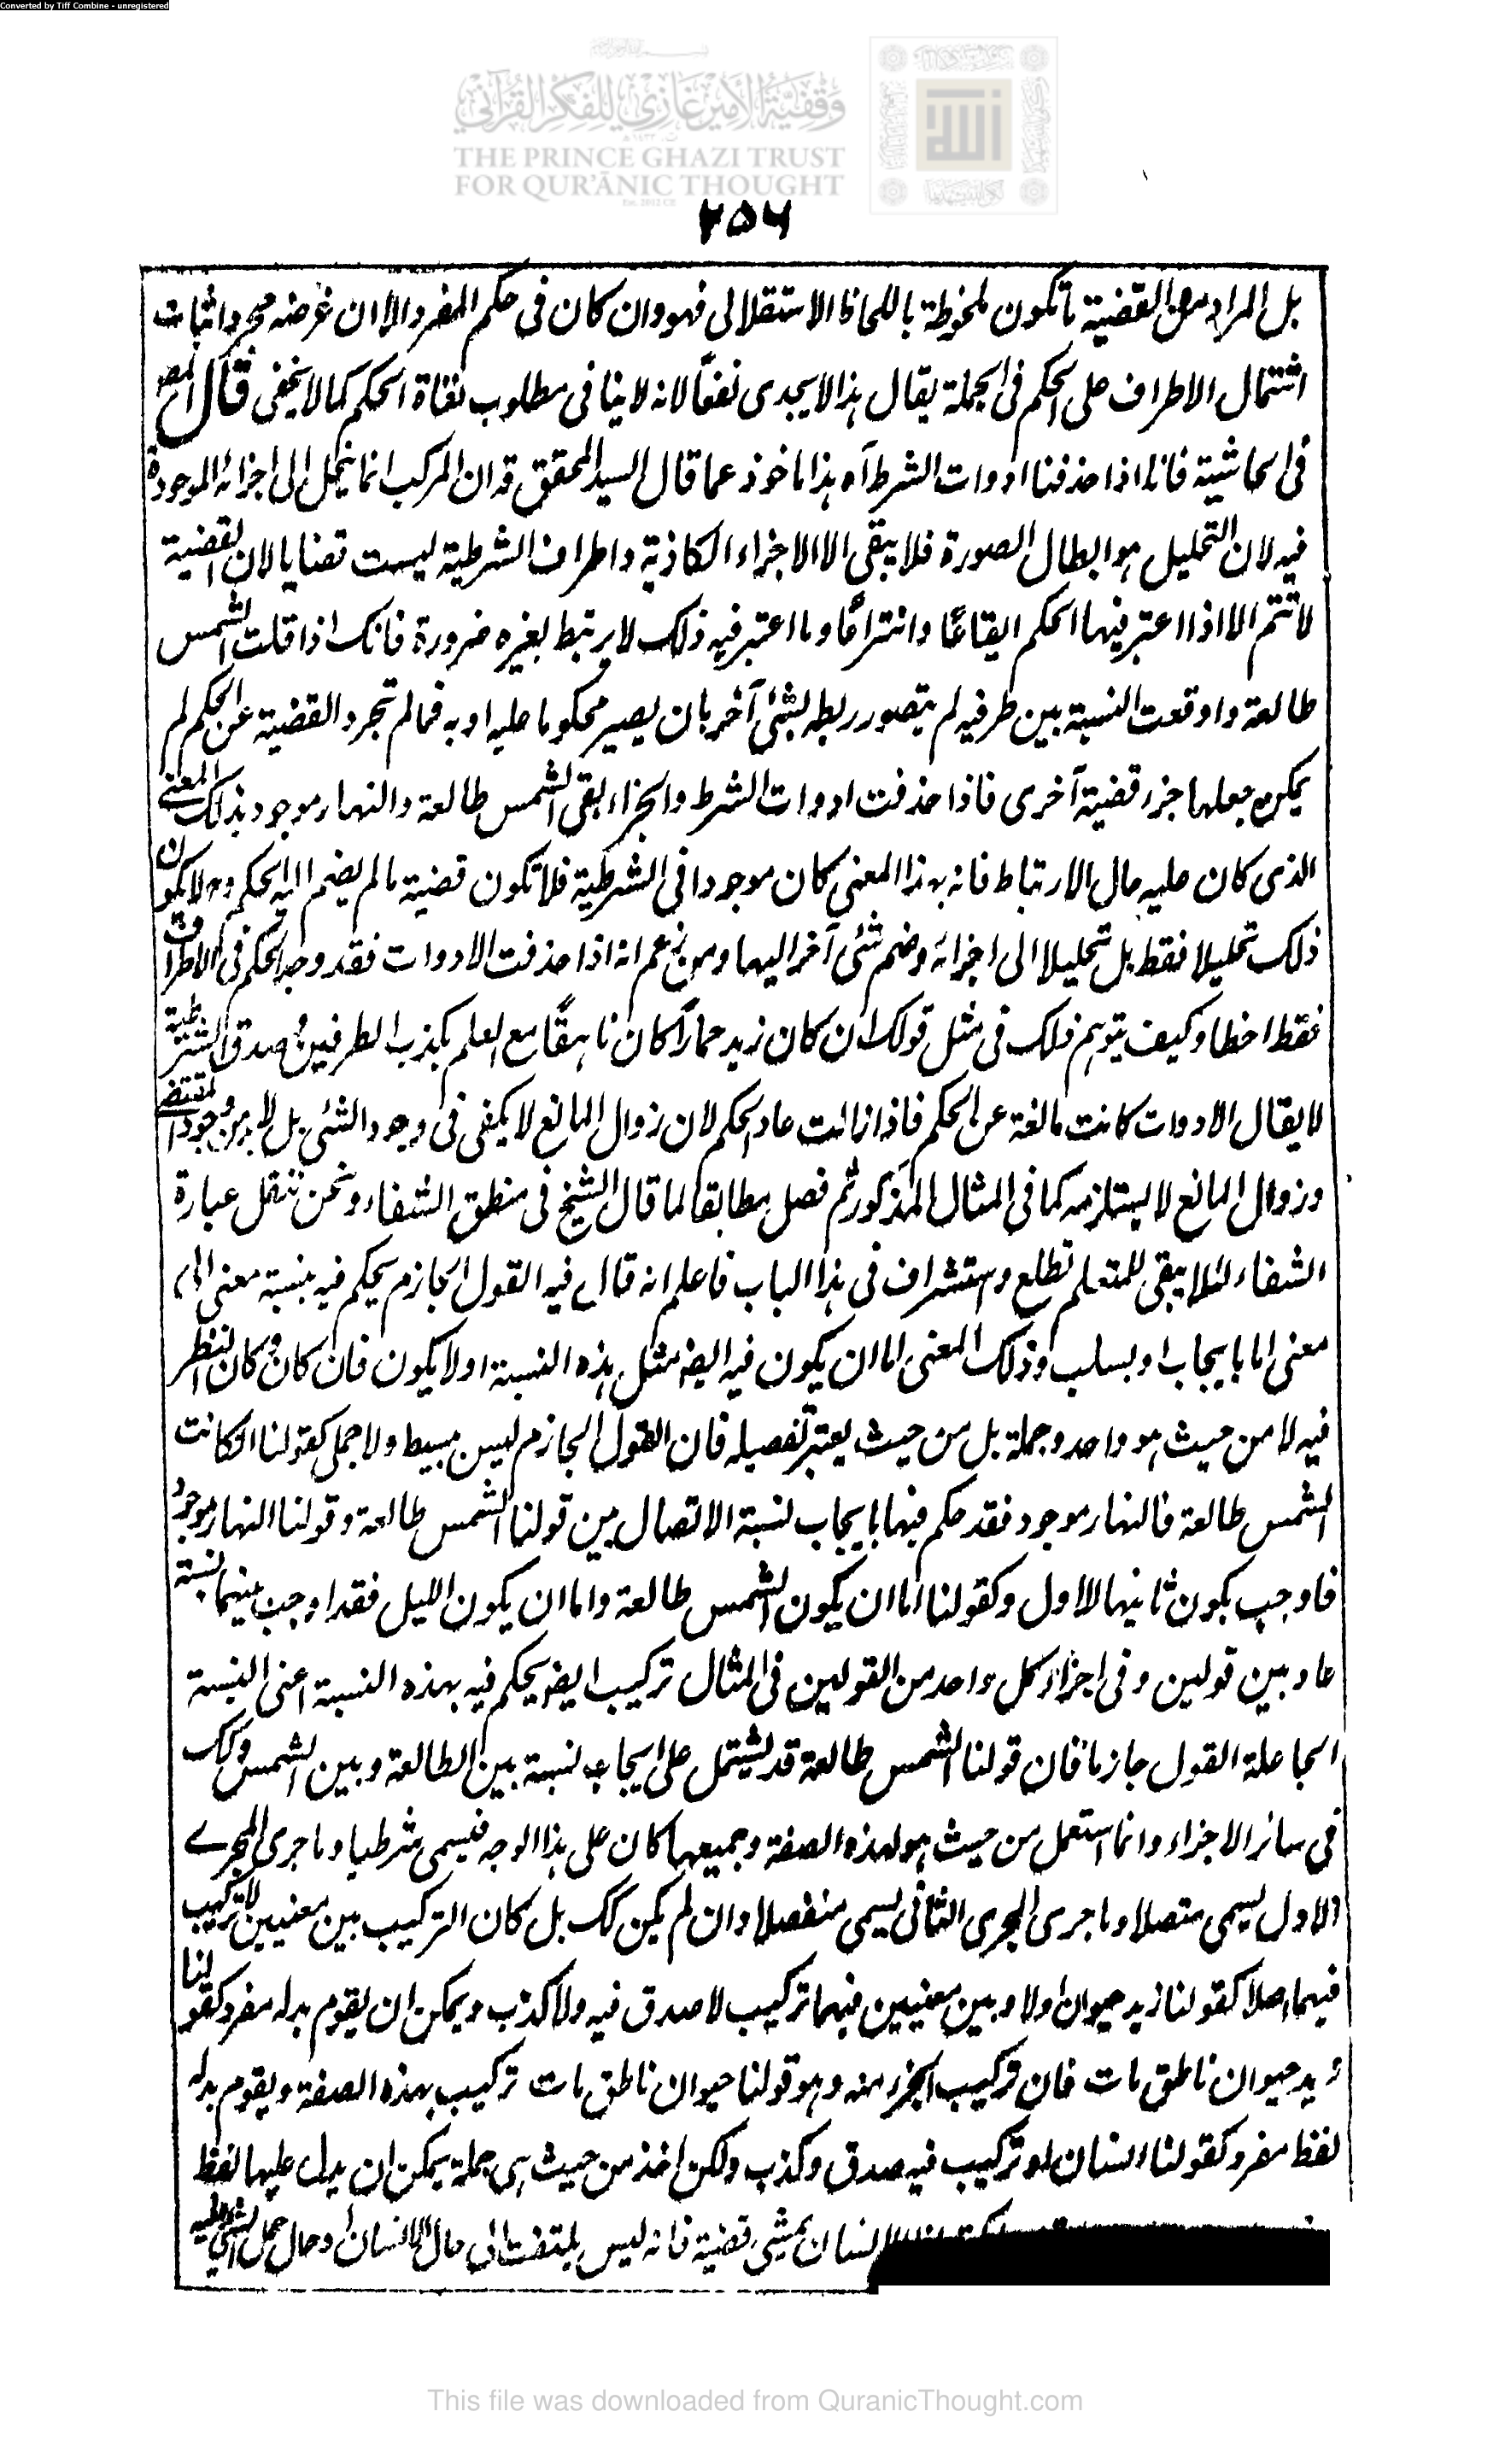 Converted by Tiff Combine - unregistered
وقفية الأمير غازي للفكر القرآني
THE PRINCE GHAZI TRUST
FOR QUR'ĀNIC THOUGHT
Est. 2012 CE
٢٥٦
بل المراد من القضية ما تكون ملحوظة باللحاظ الاستقلالى فهو وان كان فى حكم المفرد الا ان غرضه مجرد اثبات
اشتمال الاطراف على الحكم فى الجملة يقال هذا لا يجدى نفعًا لانه لا ينافى مطلوب نفاة الحكم كما لا يخفى قال المص
فى الحاشية فانا اذا حذفنا ادوات الشرط آه هذا ماخوذ عما قال السيد المحقق قد ان المركب انما ينحل الى اجزائه الموجودة
فيه لان التحليل هو ابطال الصورة فلا يبقى الا الاجزاء الكاذبة واطراف الشرطية ليست قضايا لان القضية
لا تتم الا اذا اعتبر فيها الحكم ايقاعًا وانتزاعًا وما اعتبر فيه ذلك لا يرتبط بغيره ضرورة فانك اذا قلت الشمس
طالعة واوقعت النسبة بين طرفيه لم يتصور ربطه بشئ آخر بان يصير محكوما عليه او به فما لم تجرد القضية عن الحكم لم
يمكن جعلها جزء قضية آخرى فاذا حذفت ادوات الشرط والجزاء بقى الشمس طالعة والنهار موجود بذلك المعنى
الذى كان عليه حال الارتباط فانه بهذا المعنى كان موجودا فى الشرطية فلا تكون قضية ما لم يضم اليه الحكم وح لا يكون
ذلك تحليلا فقط بل تحليلا الى اجزائه وضم شئ آخر اليها ومن زعم انه اذا حذفت الادوات فقد وجد الحكم فى الاطراف
فقط اخطا وكيف يتوهم ذلك فى مثل قولك ان كان زيد حمارًا كان ناهقًا مع العلم بكذب الطرفين وصدق الشرطية
لا يقال الادوات كانت مانعة عن الحكم فاذا زالت عاد الحكم لان زوال المانع لا يكفى فى وجود الشئ بل لا بد من وجود المقتضى
وزوال المانع لا يستلزمه كما فى المثال المذكور ثم فصل مطابقا لما قال الشيخ فى منطق الشفاء ونحن ننقل عبارة
الشفاء لئلا يبقى للمتعلم تطلع واستشراف فى هذا الباب فاعلم انه قال فيه القول الجازم يحكم فيه بنسبة معنى الى
معنى اما بايجاب او بسلب وذلك المعنى اما ان يكون فيه ايضا مثل هذه النسبة اولا يكون فان كان وكان النظر
فيه لا من حيث هو واحد وجملة بل من حيث يعتبر تفصيله فان القول الجازم ليس ببسيط ولا حملى كقولنا ان كانت
الشمس طالعة فالنهار موجود فقد حكم فيها بايجاب لنسبة الاتصال بين قولنا الشمس طالعة وقولنا النهار موجود
فاوجب بكون ثانيها للاول وكقولنا اما ان يكون الشمس طالعة واما ان يكون الليل فقد اوجب بينهما نسبة
عناد بين قولين وفى اجزاء كل واحد من القولين فى المثال تركيب ايضا يحكم فيه بهذه النسبة اعنى النسبة
الجاعلة القول جازما فان قولنا الشمس طالعة قد يشتمل على ايجاب نسبة بين الطالعة وبين الشمس وكك
فى سائر الاجزاء وانما استعمل من حيث هو لهذه الصفة وجميعها كان على هذا الوجه فيسمى شرطيا وما جرى المجرى
الاول يسمى متصلا وما جرى المجرى الثانى يسمى منفصلا وان لم يكن كك بل كان التركيب بين معنيين لا تركيب
فيهما اصلا كقولنا زيد حيوان اولا وبين معنيين فيهما تركيب لا صدق فيه ولا كذب ويمكن ان يقوم بدله مفرد كقولنا
زيد حيوان ناطق مات فان تركيب الجزء منه وهو قولنا حيوان ناطق مات تركيب بهذه الصفة ويقوم بدله
لفظ مفرد كقولنا انسان او تركيب فيه صدق وكذب ولكن اخذ من حيث هى جملة يمكن ان يدل عليها لفظ
الانسان يمشى قضية فانه ليس يلتفت الى حال الانسان وحال حمل المشى عليه
This file was downloaded from QuranicThought.com